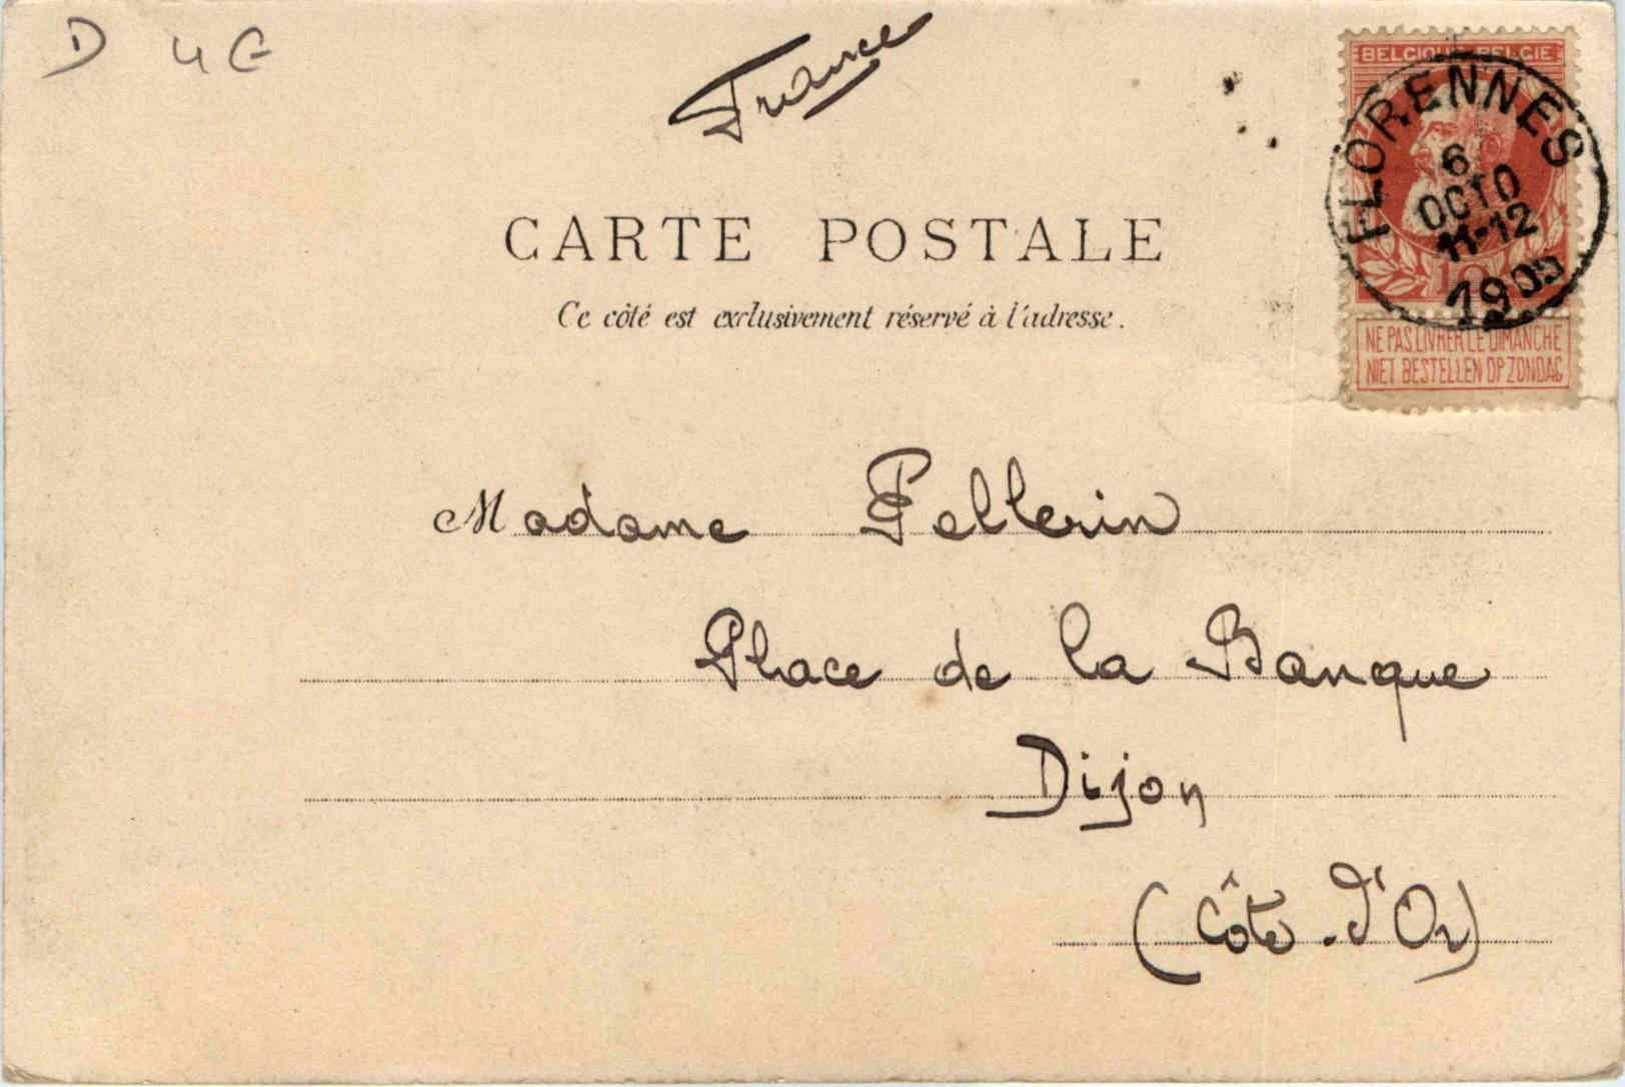 D 4 E
France
BELGIQUE BELGIE
FLORENNES
6
OCTO
11-12
10
1905
NE PAS LIVRER LE DIMANCHE
NIET BESTELLEN OP ZONDAG
CARTE POSTALE
Ce côté est exclusivement réservé à l'adresse.
Madame Pellerin
Place de la Banque
Dijon
(Côte-d'Or)